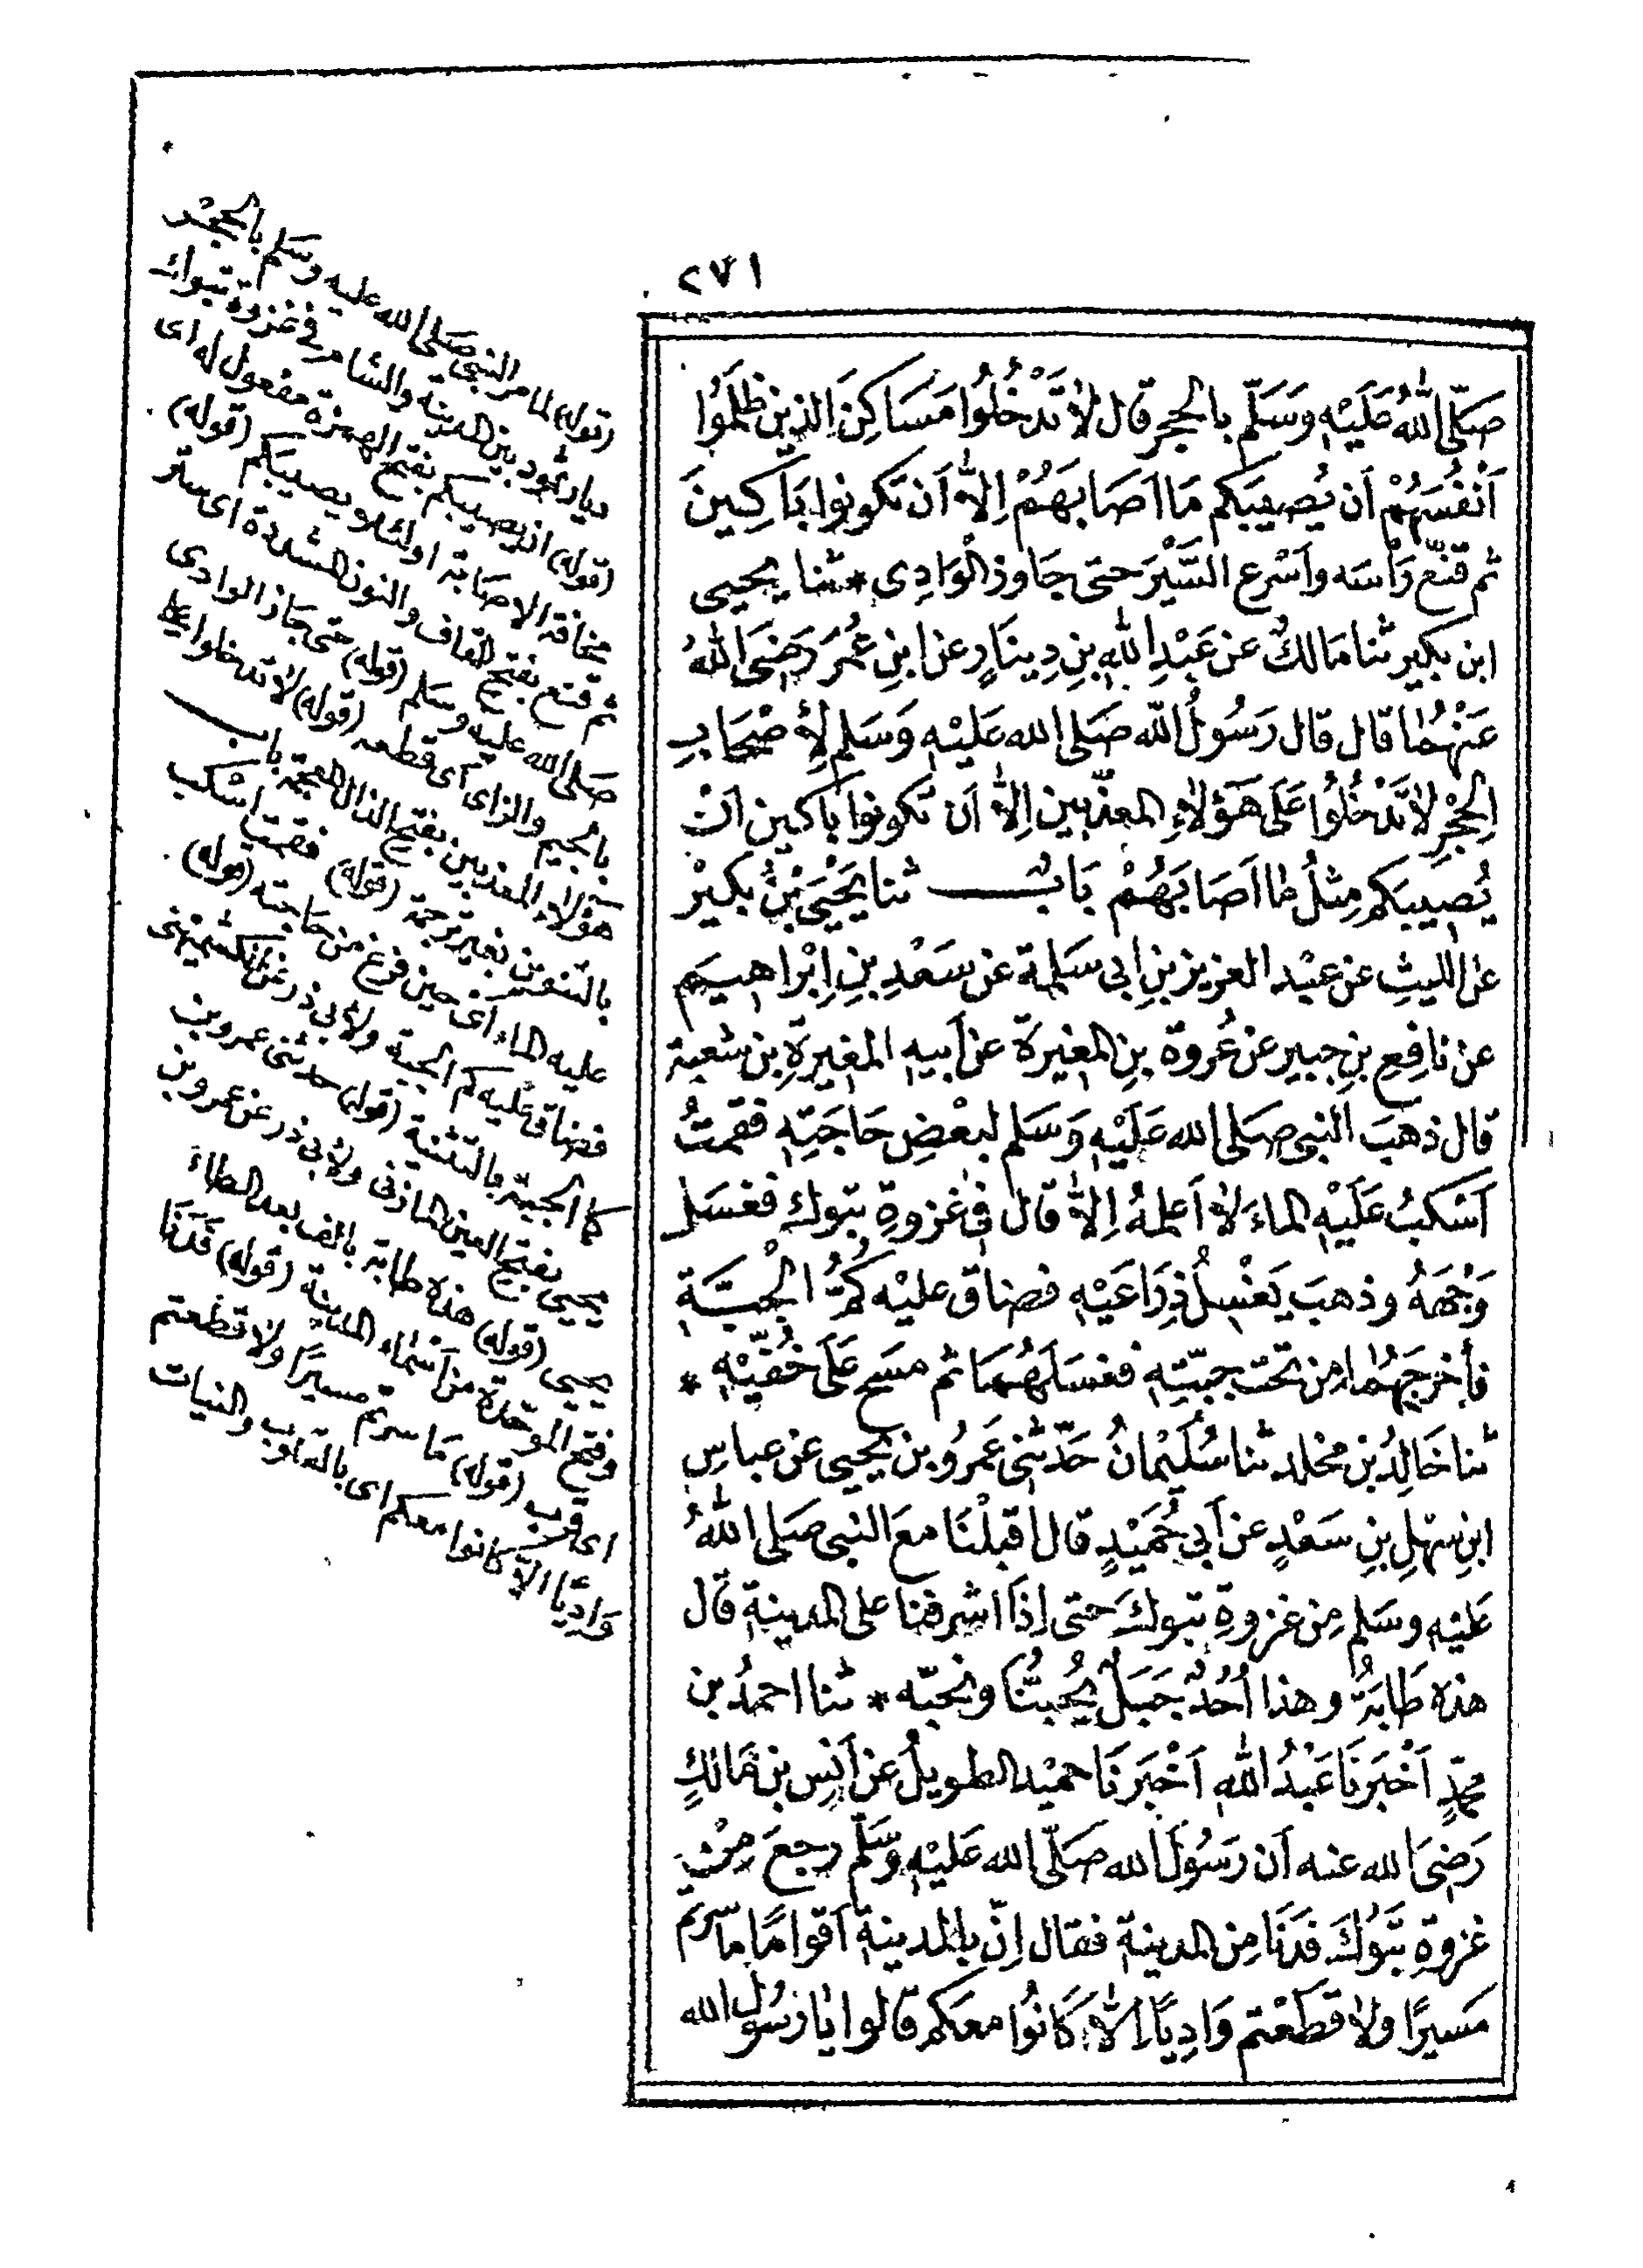 ٢٧١
صَلّى اللهُ عَلَيْهِ وَسَلّم بالحجر قال لاَ تَدْخُلُوا مَسَاكِنَ الذين ظلَمُوا
اَنْفُسَهُمْ اَن يُصيبَكم مَا اَصَابَهُمْ اِلاّ اَن تكونوا بَاكِينَ
ثم قنّع رَأسَه واَسْرع السَّيْرَ حتى جَاوز الْوَادِى * ثنا يحيى
ابن بكير ثنا مَالكٌ عن عَبْدِ اللهِ بنِ دِينَارٍ عن ابنِ عُمَرَ رَضىَ اللهُ
عَنْهُمَا قال قال رَسُولُ اللّه صَلى الله عَلَيْهِ وَسَلم لِأَصْحَابِ
الِحْجْرِ لاَ تَدْخُلُوا عَلَى هَؤلاَءِ المعذّبين اِلاّ اَن تكونوا بَاكين اَنْ
يُصيبَكم مِثلُ مَا اَصَابَهُمْ بَابٌ ثنا يَحْيَى بْنُ بكيرْ
عن الليثِ عن عبْد العزيز بنِ ابى سَلَمة عن سَعْدِ بنِ اِبْرَاهيم
عن نَافِعِ بنِ جبير عن عُروة بنِ المغِيرَة عن اَبيهِ المغِيرَةِ بن شعبة
قال ذهَبَ النبى صَلى الله عَلَيْهِ وَسَلم لبعْضِ حَاجَتِهِ فقمتُ
اَسْكبُ عَلَيْهِ الماءَ لاَ اَعلمهُ اِلاّ قال فى غزوةِ تبوك فغسَل
وَجْهَهُ وذهبَ يَغْسِلُ ذِرَاعَيْهِ فضاق عليْه كُمُّ الْجُبَّةِ
فأخرجَهُمَا مِن تحت جبّتِهِ فغسَلَهُمَا ثم مسَح عَلَى خُفّيْهِ *
ثنا خَالدُ بن مخلد ثنا سُلَيْمانُ حَدّثنى عَمرُو بن يحيى عن عباسِ
ابنِ سهْلِ بنِ سَعْدٍ عن اَبى حُمَيْدٍ قال اَقبلْنَا معَ النبى صَلى اللهُ
عَليْهِ وسَلم مِن غزوةِ تبوكَ حتى اِذَا اشرفنا على المدينةِ قال
هذه طَابَةٌ وهذا اُحُدٌ جَبَلٌ يُحبّنَا ونحبّه * ثنا احمدُ بن
محمّدٍ اَخْبَرنَا عَبْدُ اللهِ اَخْبَرنَا حميْد الطويلُ عن اَنسِ بن مَالكٍ
رَضىَ الله عنه اَن رَسُولَ الله صَلّى الله عَليْهِ وَسَلّم رجعَ مِنْ
غزوةِ تَبُوكَ فدَنَا مِن المدينة فقال اِنّ بالمدينة اَقوامًا مَا سرتم
مَسيرًا ولاَ قطَعْتم وَادِيًا اِلاّ كَانُوا معَكم قالوا يَا رَسُولَ الله
(قوله) لما مر النبى صَلى الله عليه وسَلم بالحجْر
ديار ثمود بين المدينة والشام فى غزوة تبوك
(قوله) ان يصيبكم بفتح الهمزة مفعول له اى
مخافة الاصَابة او لئلا يصيبكم (قوله)
ثم قنع بفتح القاف والنون المشددة اى ستر
صَلى الله عليه وسَلم (قوله) حتى جَاز الوادى
بالجيم والزاى اى قطعه (قوله) لا تدخلوا على
هؤلاء المعذبين بفتح الذال المعجمة باب
بالتنوين بغير ترجمة (قوله) فقمت اسْكب
عليه الماء اى حين فرغ من حَاجته (قوله)
فضاق عليه كم الجبة ولابى ذر عن الكشميهنى
كما الجبة بالتثنية (قوله) حدثنى عمرو بن
يحيى بفتح العين المازنى ولابى ذر عن عمرو بن
يحيى (قوله) هذه طابة بالف بعد الطاء
وفتح الموحّدة من اَسْماء المدينة (قوله) فَدَنَا
اى قرب (قوله) مَا سرتم مسيرًا ولا قطعتم
وَاديًا الاّ كانوا معكم اى بالقلوب والنيات